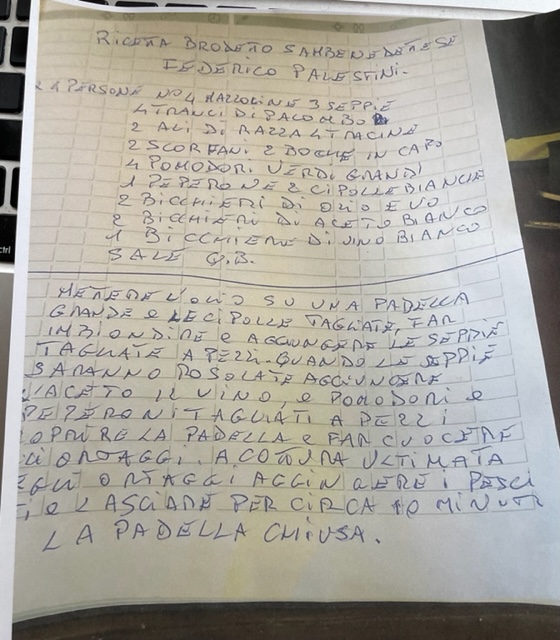 RICETTA BRODETTO SAMBENEDETTESE
FEDERICO PALESTINI.
4 PERSONE NO4 MAZZOLINE 3 SEPPIE
4 TRANCI DI PALOMBO
2 ALI DI RAZZA 4 TRACINE
2 SCORFANI 2 BOCHE IN CAPO
4 POMODORI VERDI GRANDI
1 PEPERONE 2 CIPOLLE BIANCHE
2 BICCHIERI DI OLIO EVO
2 BICCHIERI DI ACETO BIANCO
1 BICCHIERE DI VINO BIANCO
SALE Q.B.
METTERE L'OLIO SU UNA PADELLA
GRANDE e LE CIPOLLE TAGLIATE, FAR
IMBIONDIRE e AGGIUNGERE LE SEPPIE
TAGLIATE A PEZZI. QUANDO LE SEPPIE
SARANNO ROSOLATE AGGIUNGERE
L'ACETO IL VINO, e POMODORI e
PEPERONI TAGLIATI A PEZZI
COPRIRE LA PADELLA e FAR CUOCERE
ORTAGGI. A COTTURA ULTIMATA
EGLI ORTAGGI AGGINGERE I PESCI
e LASCIARE PER CIRCA 10 MINUTI
LA PADELLA CHIUSA.
ctrl